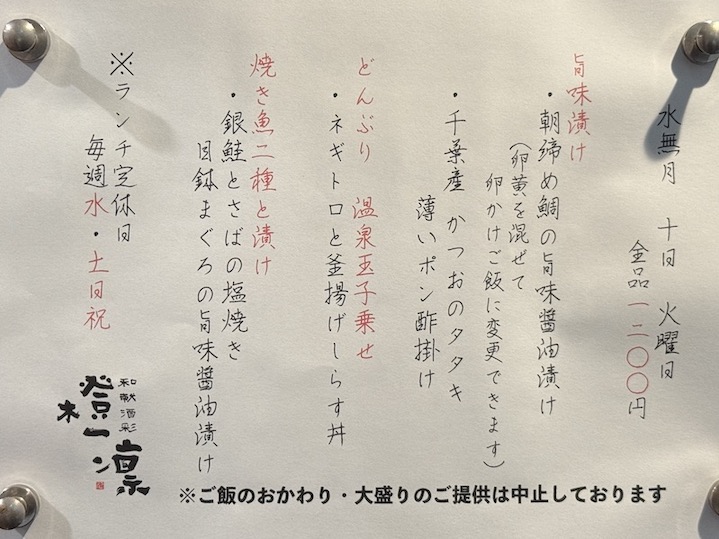 水無月　十日　火曜日
全品一二〇〇円
旨味漬け
・朝締め鯛の旨味醤油漬け
（卵黄を混ぜて
卵かけご飯に変更できます）
・千葉産　かつおのタタキ
薄いポン酢掛け
どんぶり　温泉玉子乗せ
・ネギトロと釜揚げしらす丼
焼き魚二種と漬け
・銀鮭とさばの塩焼き
目鉢まぐろの旨味醤油漬け
※ランチ定休日
毎週水・土日祝
和
酒彩
凛
※ご飯のおかわり・大盛りのご提供は中止しております